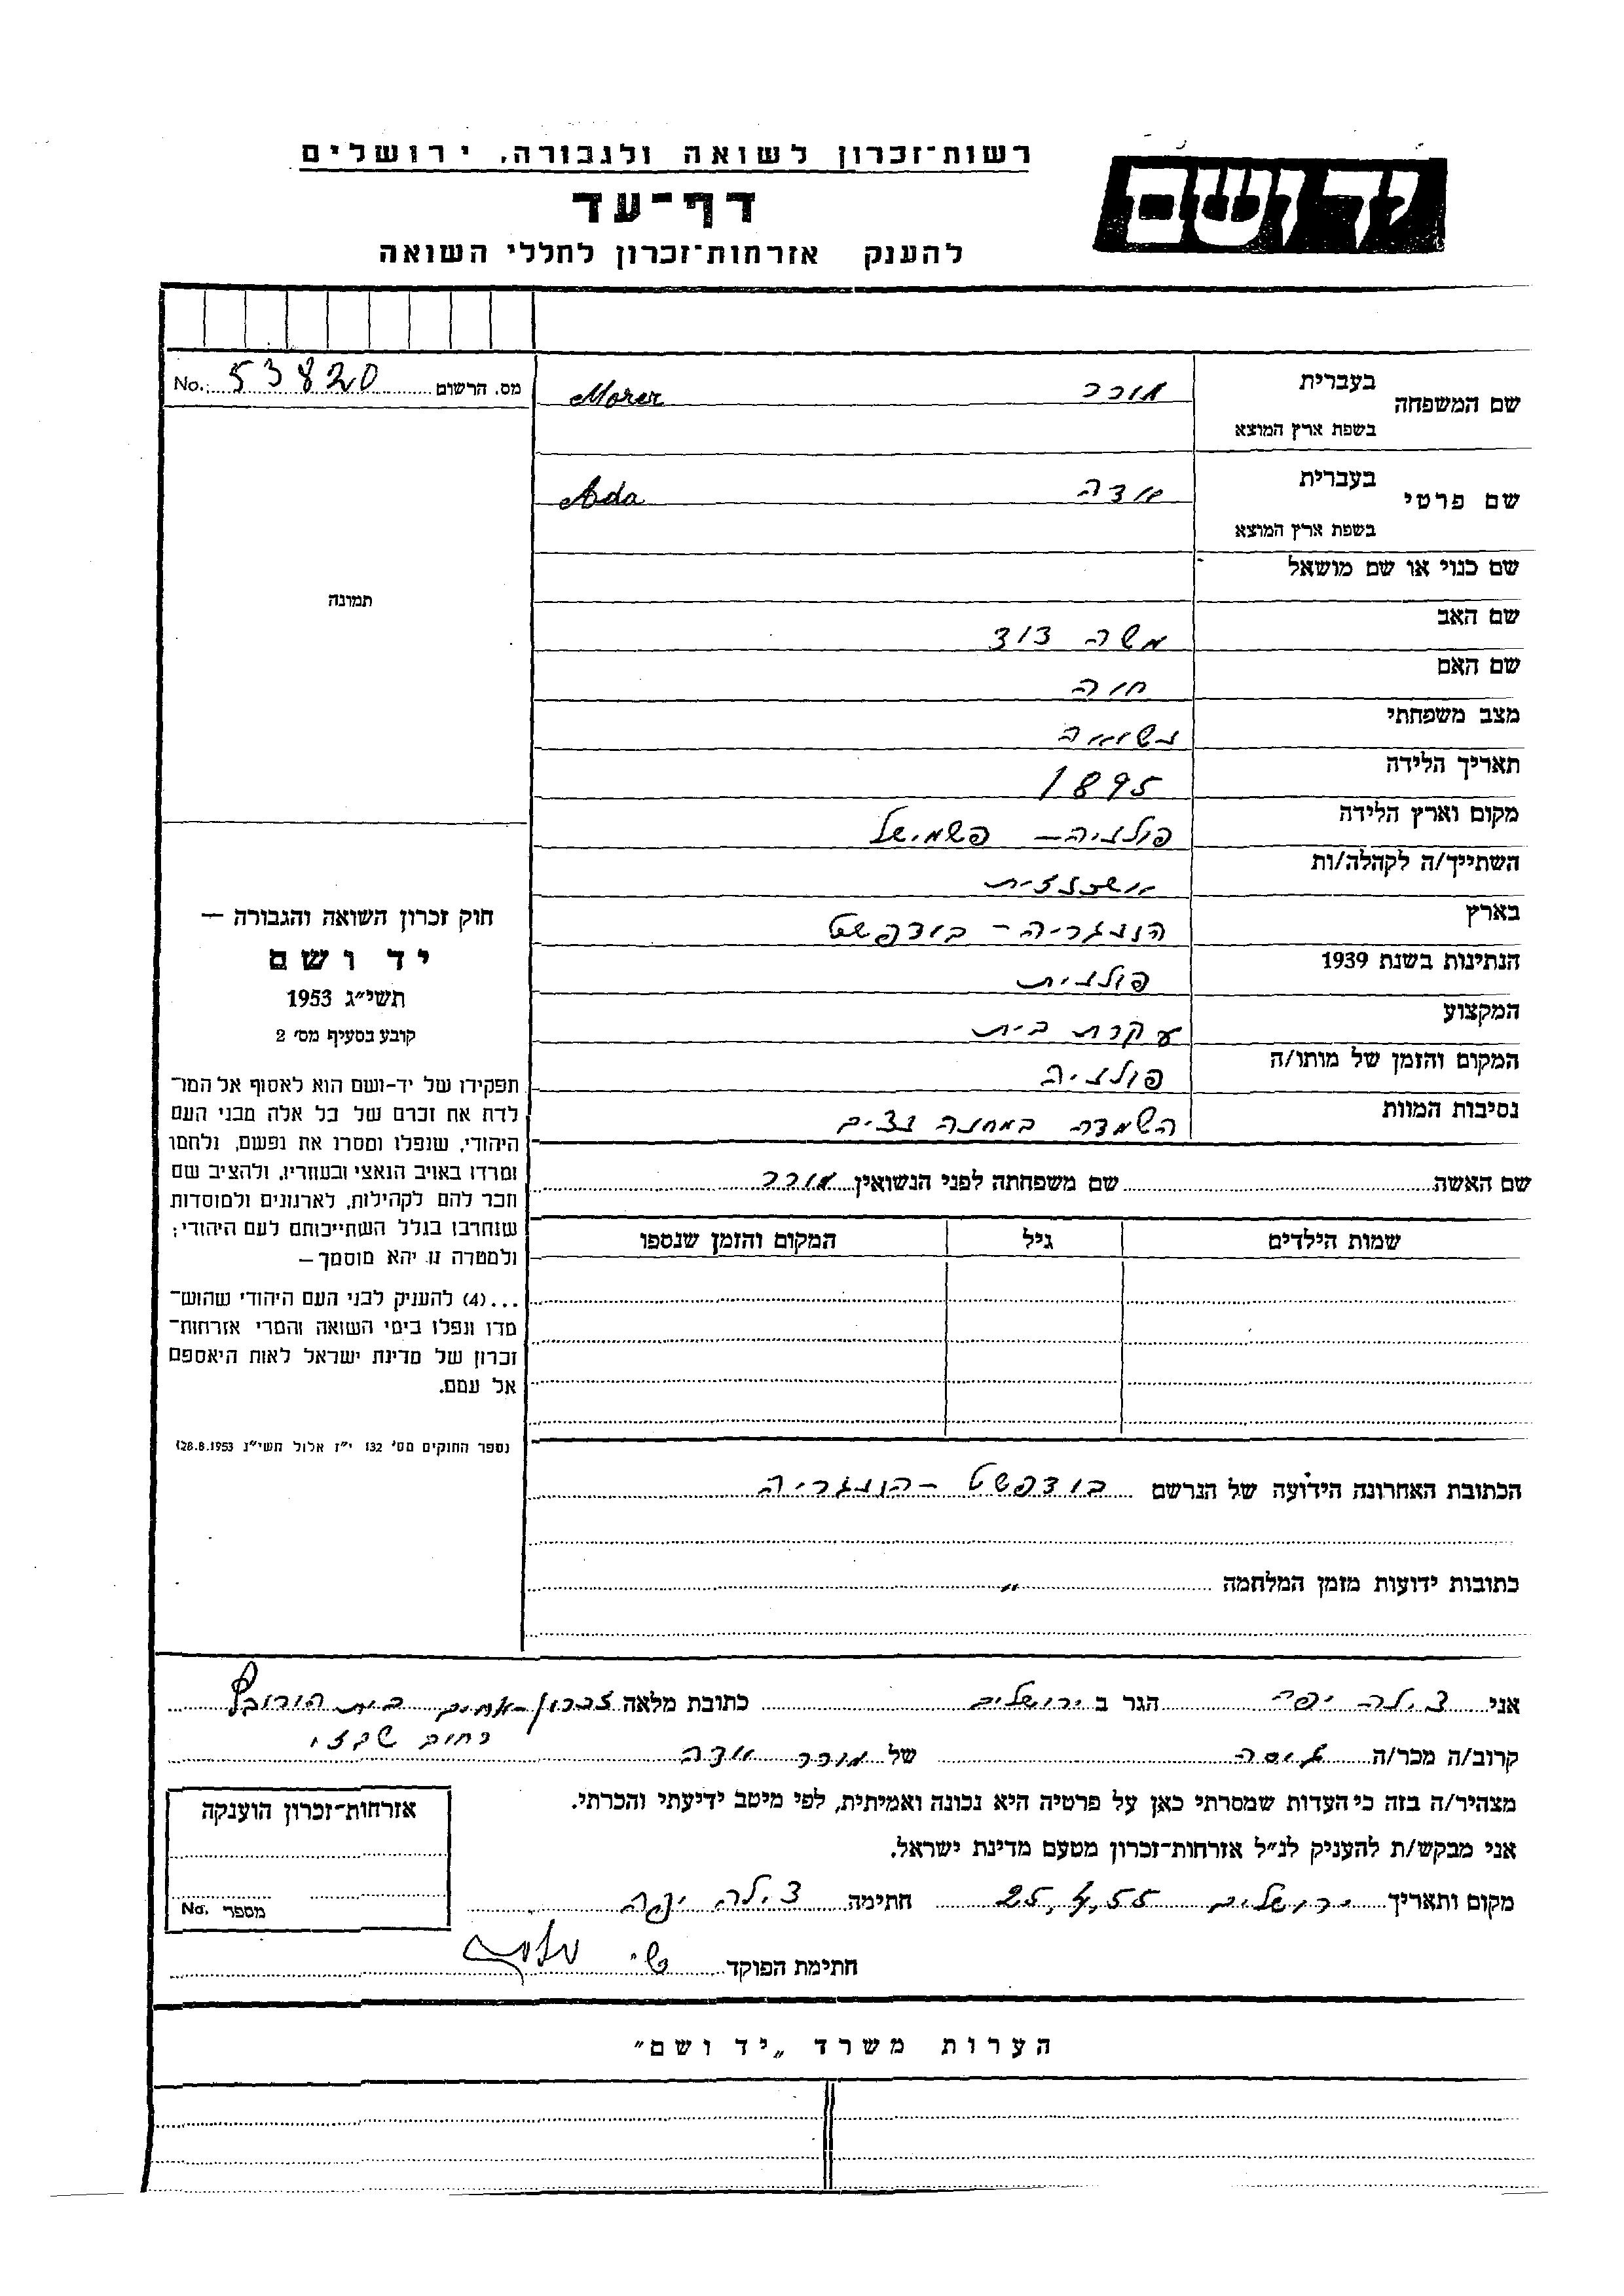 רשות־זכרון לשואה ולגבורה, ירושלים
יד ושם
דף־עד
להענק אזרחות־זכרון לחללי השואה
שם המשפחה בעברית מורר Morer
בשפת ארץ המוצא
שם פרטי בעברית אדה Ada
בשפת ארץ המוצא
שם כנוי או שם מושאל
שם האב משה דוד
שם האם חוה
מצב משפחתי נשואה
תאריך הלידה 1895
מקום וארץ הלידה פולניה – פשמישל
השתייך/ה לקהלה/ות אשכנזית
בארץ הונגריה – בודפשט
הנתינות בשנת 1939 פולנית
המקצוע עקרת בית
המקום והזמן של מותו/ה פולניה
נסיבות המוות השמדה במחנה נצים
שם האשה שם משפחתה לפני הנשואין מורר
שמות הילדים גיל המקום והזמן שנספו
הכתובת האחרונה הידועה של הנרשם בודפשט – הונגריה
כתובות ידועות מזמן המלחמה "
מס. הרשום No. 53820
תמונה
חוק זכרון השואה והגבורה —
יד ושם
תשי״ג 1953
קובע בסעיף מס׳ 2
תפקידו של יד-ושם הוא לאסוף אל המו־
לדת את זכרם של כל אלה מבני העם
היהודי, שנפלו ומסרו את נפשם, נלחמו
ומרדו באויב הנאצי ובעוזריו, ולהציב שם
וזכר להם לקהילות, לארגונים ולמוסדות
שנחרבו בגלל השתייכותם לעם היהודי;
ולמטרה זו יהא מוסמך —
...(4) להעניק לבני העם היהודי שהוש־
מדו ונפלו בימי השואה והמרי אזרחות־
זכרון של מדינת ישראל לאות היאספם
אל עמם.
(ספר החוקים מס׳ 132 י״ז אלול תשי״ג 28.8.1953)
אני צילה יפה הגר ב ירושלים כתובת מלאה זכרון-אחים בית הורוביץ
רחוב שבזי
קרוב/ה מכר/ה גיסה של מורר אדה
מצהיר/ה בזה כי העדות שמסרתי כאן על פרטיה היא נכונה ואמיתית, לפי מיטב ידיעתי והכרתי.
אני מבקש/ת להעניק לנ״ל אזרחות־זכרון מטעם מדינת ישראל.
מקום ותאריך ירושלים 25.4.55 חתימה צילה יפה
חתימת הפוקד
אזרחות־זכרון הוענקה
מספר No.
הערות משרד „יד ושם״